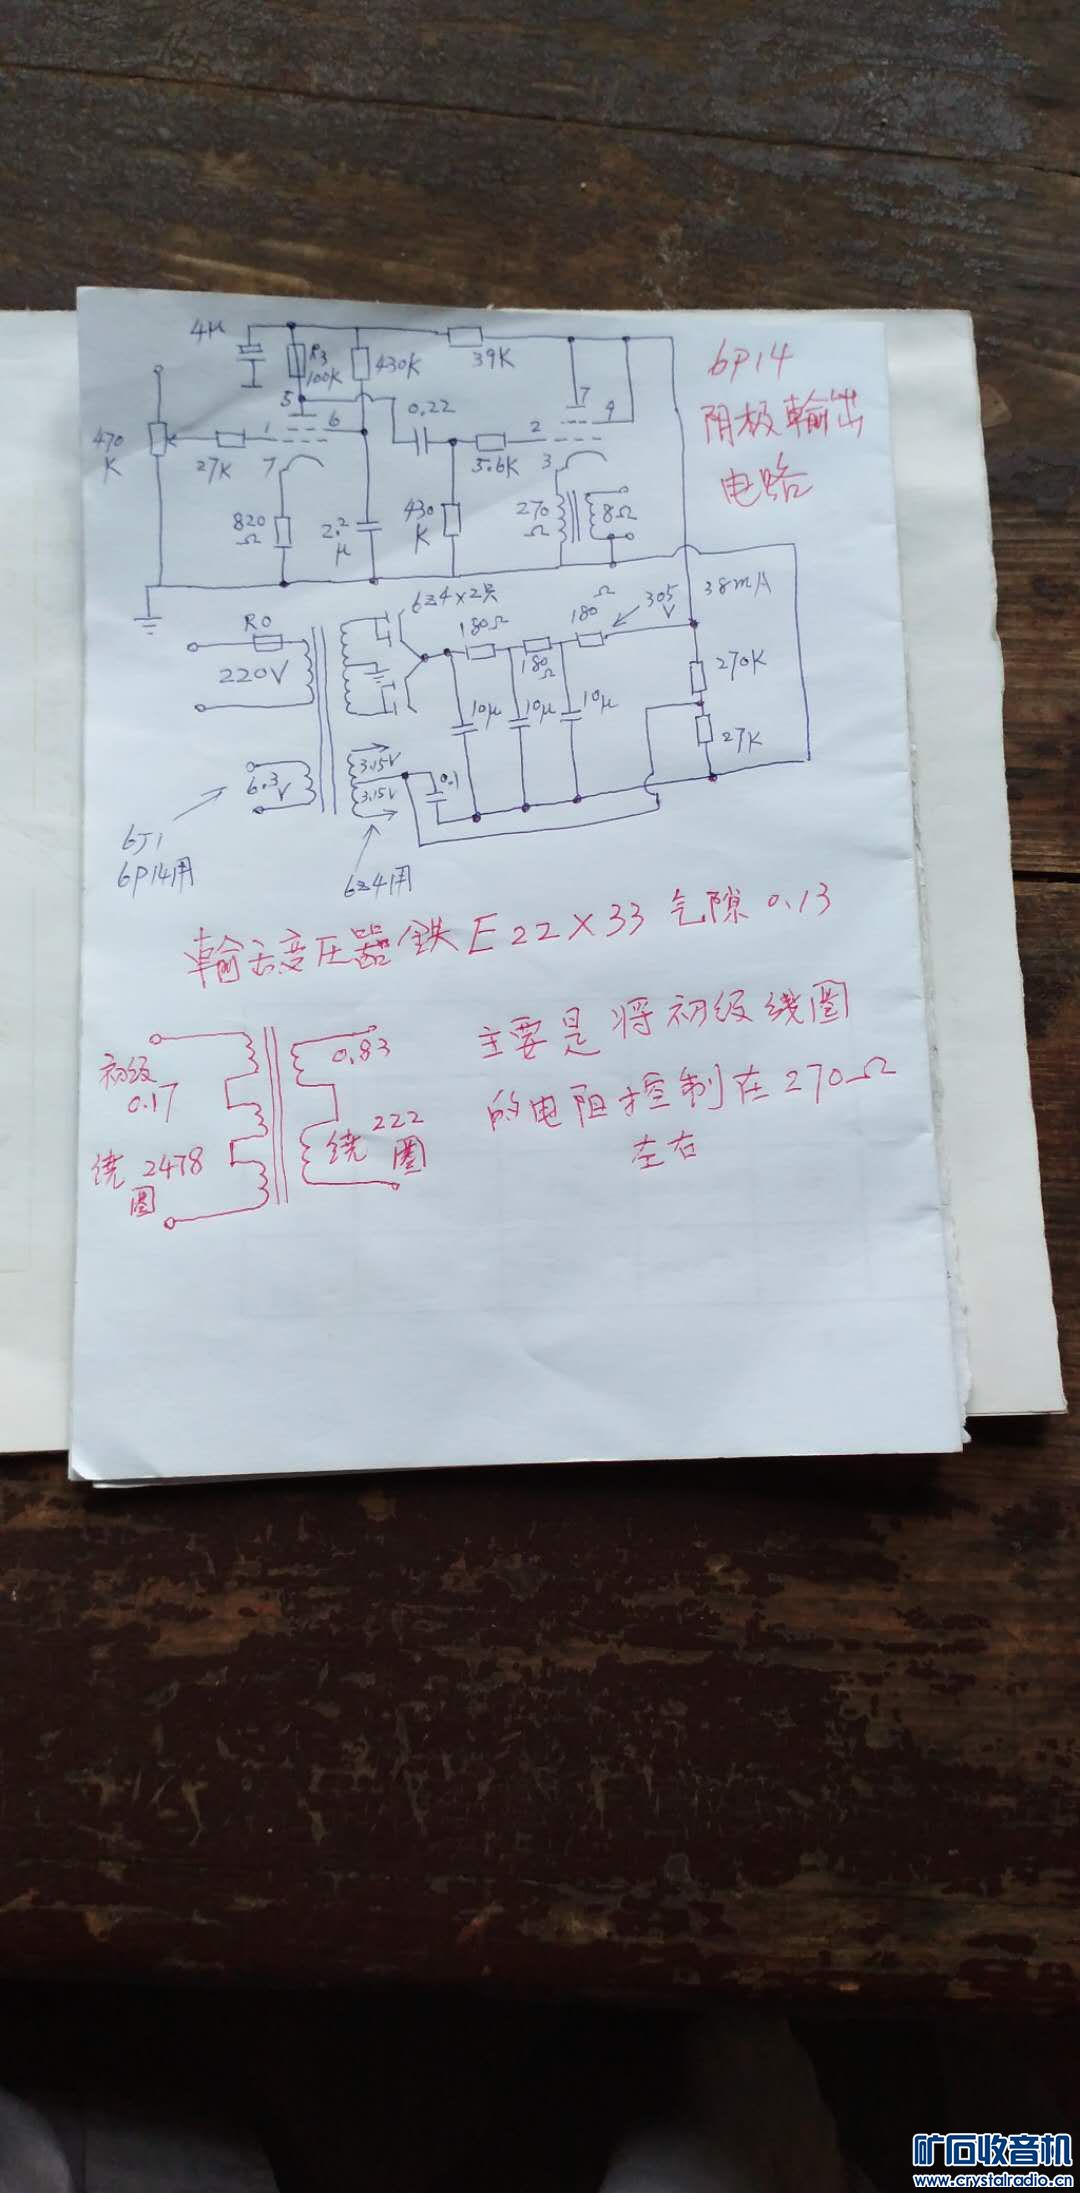 4μ
R3
100K
430K
39K
6P14
阴极輸出
电路
5
6
0.22
7
4
470
K
27K
1
7
5.6K
2
3
820
Ω
2.2
μ
430
K
270
Ω
8Ω
6Z4×2只
R0
220V
180Ω
180
Ω
180
Ω
305
V
38mA
270K
27K
10μ
10μ
10μ
6.3
V
3.15V
3.15V
0.1
6J1
6P14用
6Z4用
輸出变压器铁E22×33气隙0.13
主要是将初级线圈
的电阻控制在270Ω
左右
初级
0.17
绕2478
圈
0.83
绕222
圈
矿石收音机
www.crystalradio.cn